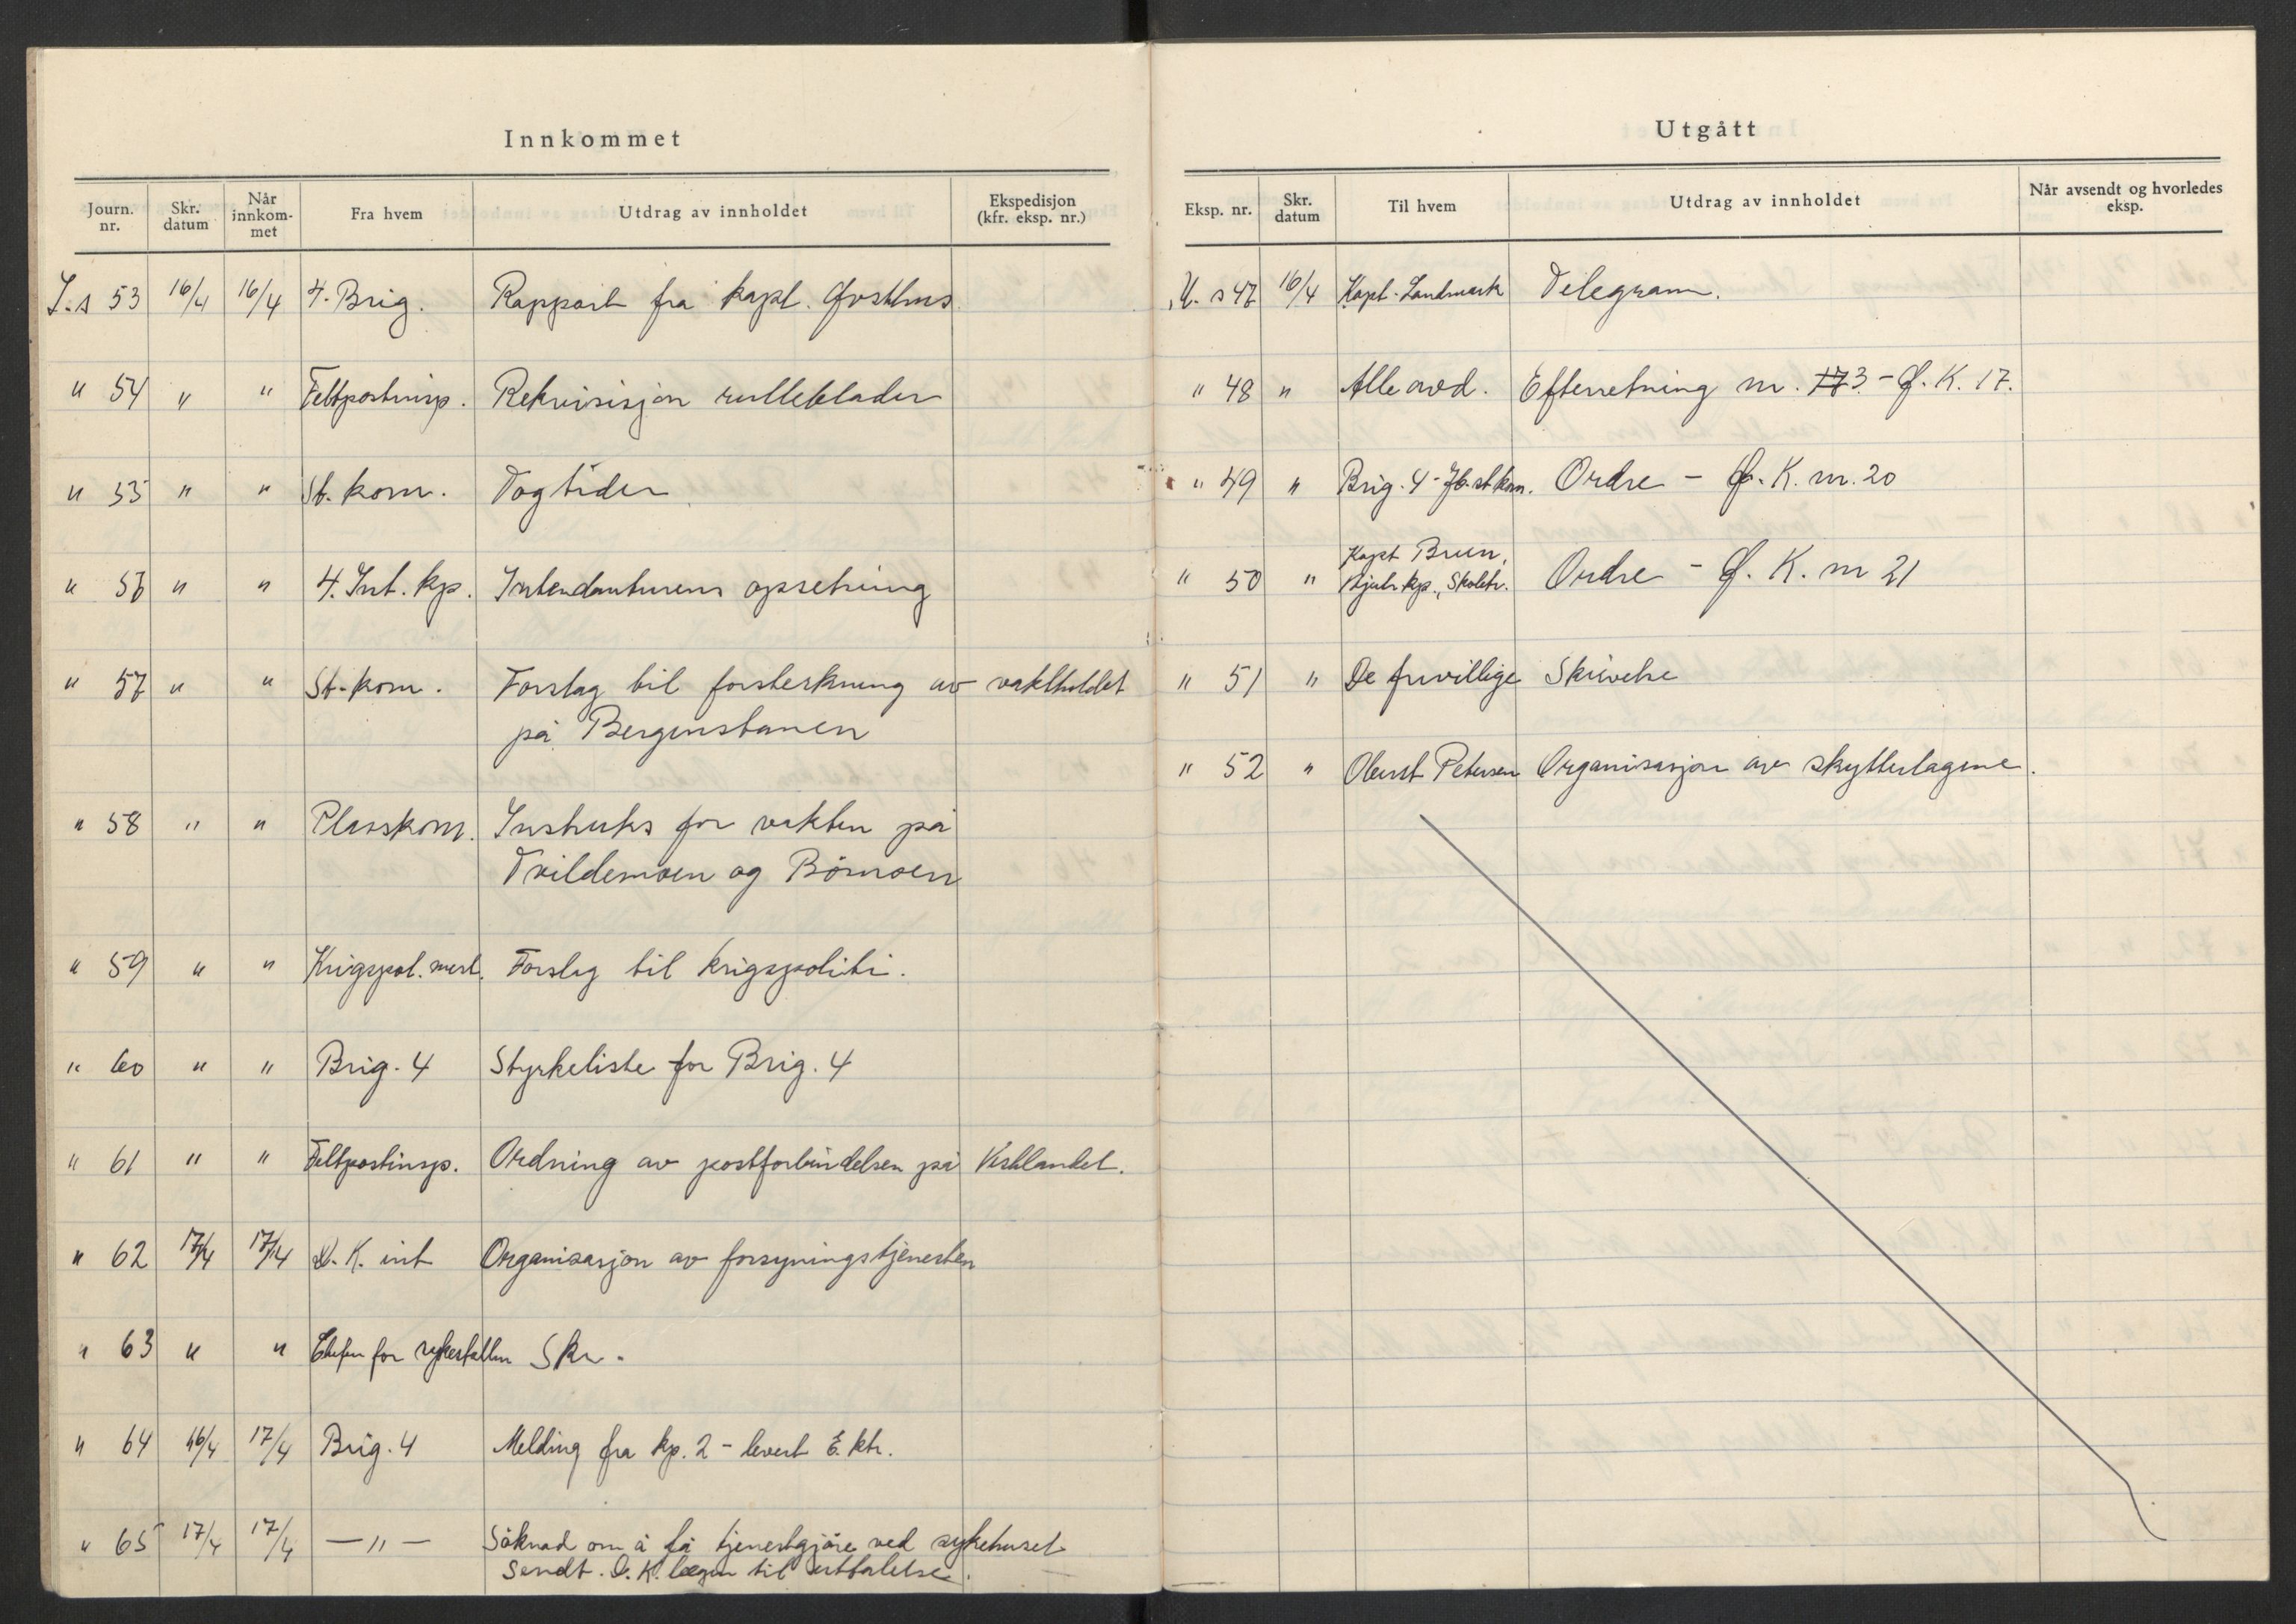 Innkommet
Journ. nr. Skr. datum Når innkommet Fra hvem Utdrag av innholdet Ekspedisjon (kfr. eksp. nr.)
J. s 53 16/4 16/4 4. Brig. Rapport fra kapt.
" 54 " " Feltpostinsp. Rekvisisjon rulleblader
" 55 " " St. kom. Togtider.
" 56 " " 4. Int. kp. Intendanturens opsetning
" 57 " " St. kom. Forslag til forsterkning av vaktholdet
på Bergensbanen
" 58 " " Plasskom. Instruks for vakten på
Tvildemoen og Bömoen
" 59 " " Krigspol. mest. Forslag til krigspoliti.
" 60 " " Brig. 4 Styrkeliste for Brig. 4
" 61 " " Feltpostinsp. Ordning av postforbindelsen på Vestlandet.
" 62 17/4 17/4 D. K. int Organisasjon av forsyningstjenesten
" 63 " " Chefen for sykestallen Skr.
" 64 16/4 17/4 Brig. 4 Melding fra kp. 2 - levert E. ktr.
" 65 17/4 17/4 — " — Söknad om å få tjenestgjöre ved sykehuset
Sendt. D. K. lægen til uttalelse.
Utgått
Eksp. nr. Skr. datum Til hvem Utdrag av innholdet Når avsendt og hvorledes eksp.
U. s 47 16/4 Kapt. Landmark Telegram.
" 48 " Alle avd. Efterretning nr. 3 - Ø. K. 17.
" 49 " Brig. 4 - st. kom. Ordre - Ø. K. nr. 20
Kapt Brun,
" 50 " kp., Skoletr. Ordre - Ø. K. nr 21
" 51 " De frivillige Skrivelse
" 52 " Oberst Petersen Organisasjon av skytterlagene.